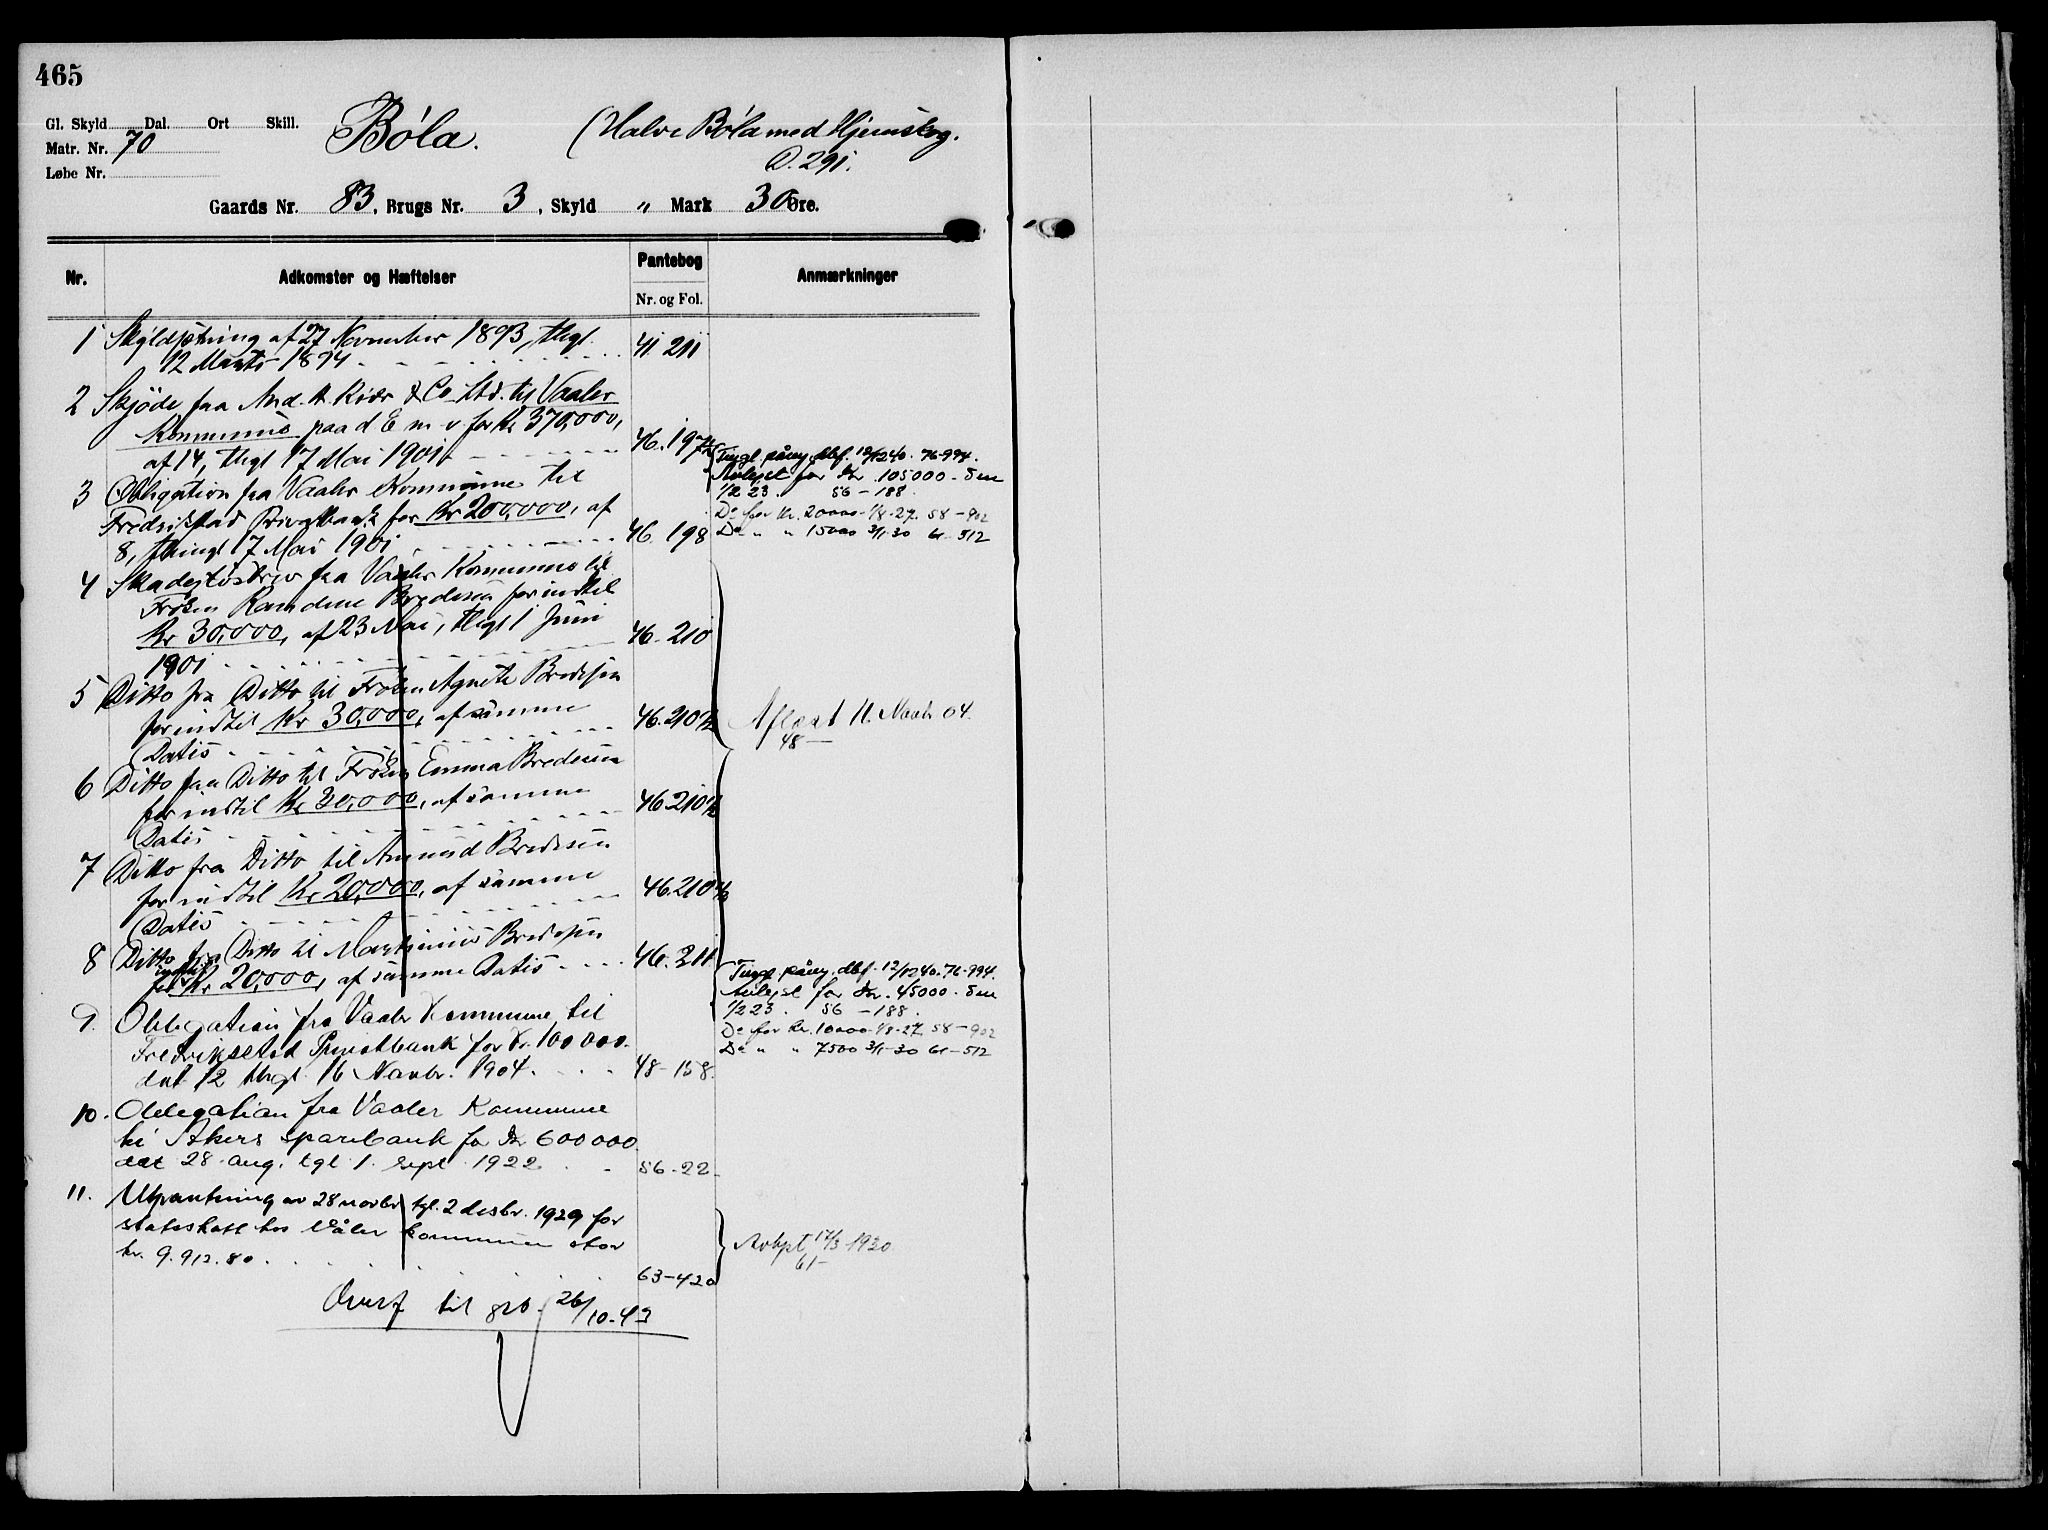 465
Gl. Skyld Dal. Ort Skill. Bóla. (Halve Bóla med Hjemskog.
Matr. Nr. 70
Løbe Nr. D. 291.
Gaards Nr. 83, Brugs Nr. 3, Skyld " Mark 30 Øre.
Nr. Adkomster og Hæftelser Pantebog Anmærkninger
Nr. og Fol.
1 Skyldsætning af 27 November 1893, thgl.
12 Marts 1894 41. 211
2 Skjöde fra And. H. Kiær & Co Ltd. til Vaaler
Kommune paa d E m v for Kr 370,000,
af 14, thgl 17 Mai 1901 46. 197
3 Obligation fra Vaaler Kommune til
Fredrikstad Privatbank for Kr 200,000, af
8, thingl 17 Mai 1901 46. 198
Tingl. påny dbf. 12/12 40. 76-994.
Avlejst for Kr. 105000. den
1/2 23. 56-188.
Do for Kr. 20000 1/8-27 58-902
Do " " 15000 3/1-30 61-512
4 Skadesløsbrev fra Vaaler Kommune til
Frøken Bredesen for indtil
Kr 30,000, af 23 Mai, thgl 1 Juni
1901 46. 210
5 Ditto fra Ditto til Frøken Agnete Bredesen
for indtil Kr 30,000, af samme
Datis 46. 210
Aflæst 11. Novbr. 04.
48-
6 Ditto fra Ditto til Frøken Emma Bredesen
for indtil Kr 30,000, af samme
Datis 46. 210
7 Ditto fra Ditto til Amund Bredesen
for indtil Kr 20,000, af samme
Datis 46. 210
8 Ditto fra Ditto til Martinius Bredesen
for indtil Kr 20,000, af samme Datis 46. 211
9. Obligation fra Vaaler Kommune til
Fredrikstad Privatbank for Kr. 100 000.
dat 12 thgl. 16 Novbr. 1904. 48-158.
Tingl. påny. dbf. 12/12 40. 76-994.
Avlejst for Kr. 45000. den
1/2 23. 56-188.
Do for Kr. 10000 1/8-27 58-902
Do " " 7500 3/1-30 61-512
10. Obligation fra Vaaler Kommune
til Akers sparebank for Kr 600 000
dat 28 aug. tgl. 1. sept. 1922 56-22
11. Utpantning av 28 novbr tgl. 2 desbr. 1929 for
statsskatt hos Våler kommune stor
kr. 9.912.80 63-420
17/3 1930
61-
Overf til 26/10-43